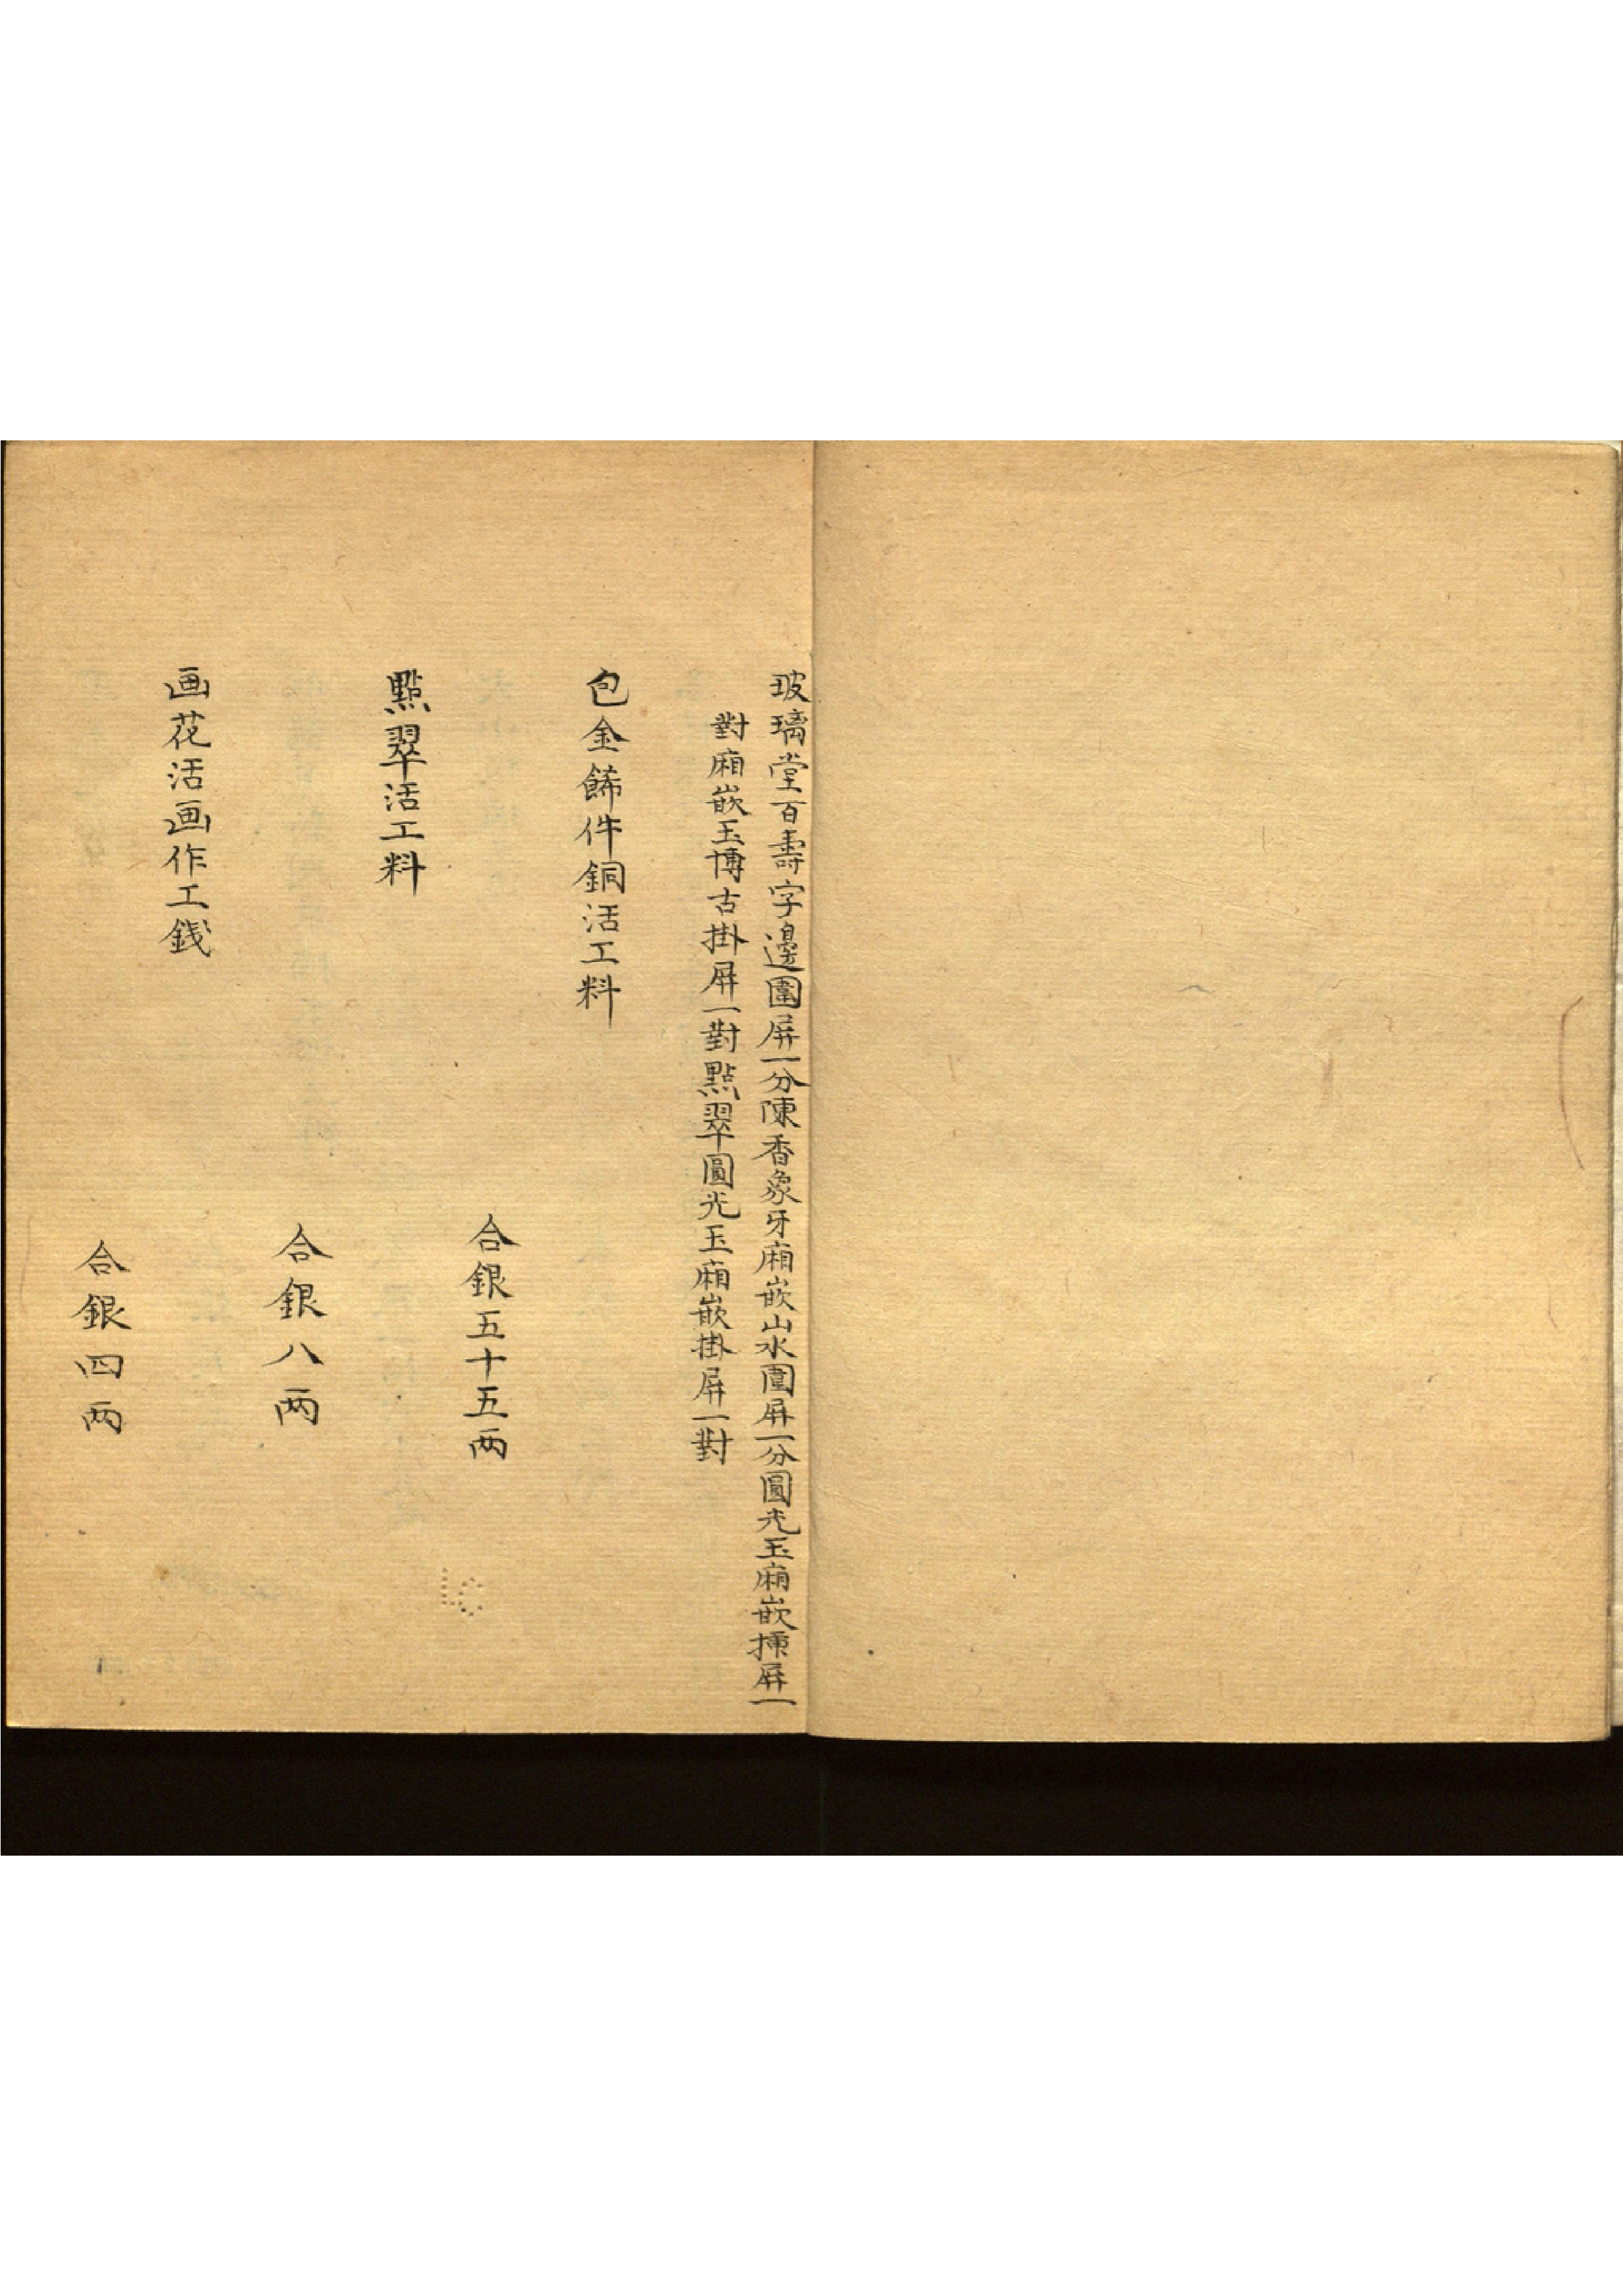 玻璃堂百壽字邊圍屏一分陳香象牙廂嵌山水圍屏一分圓光玉廂嵌揷屏一
對廂嵌玉博古掛屏一對點翠圓光玉廂嵌掛屏一對
包金餙件銅活工料
合銀五十五両
點翠活工料
合銀八両
画花活画作工銭
合銀四両